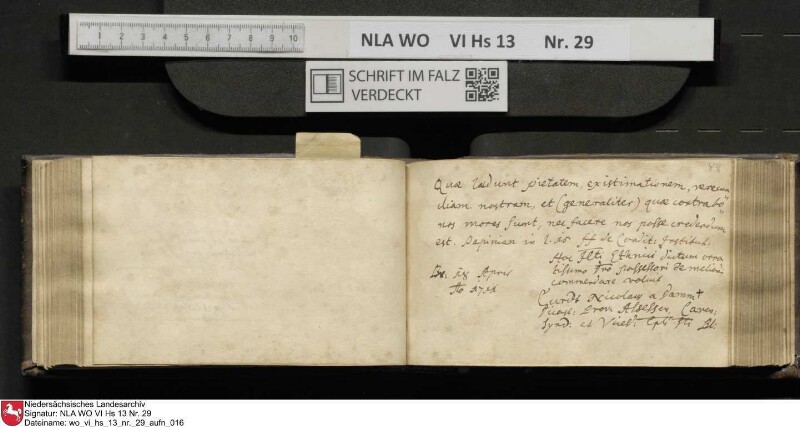 1 2 3 4 5 6 7 8 9 10
NLA WO VI Hs 13 Nr. 29
SCHRIFT IM FALZ
VERDECKT
Quæ lædunt pietatem, existimationem, verecun
diam nostram, et (generaliter) quæ contra bo
nos mores sunt, nec facere nos posse credendum
est. Papinian in l. 15 ff de Condit: Institut:
Hoc Ethnici dictum orna
tissimo Dno possessori de meliori
commendare voluit
Apris
Nicolaus a Damm
Prov: Assessor,
Synd: et
Niedersächsisches Landesarchiv
Signatur: NLA WO VI Hs 13 Nr. 29
Dateiname: wo_vi_hs_13_nr._29_aufn_016